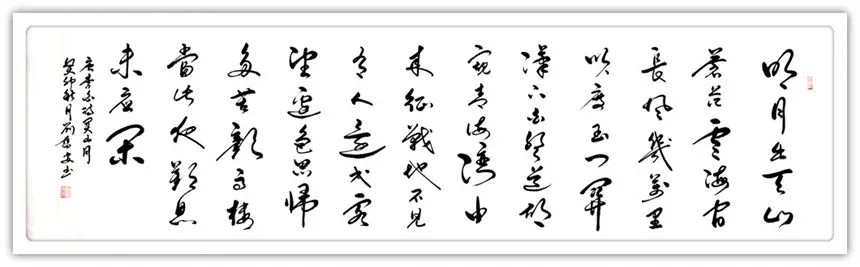 明月出天山
蒼茫雲海間
長風幾萬里
吹度玉門關
漢下白登道胡
窺青海灣由
來征戰地不見
有人還戍客
望邊色思歸
多苦顏高樓
當此夜歎息
未應閑
唐李白詩關山月
癸卯秋月劉書